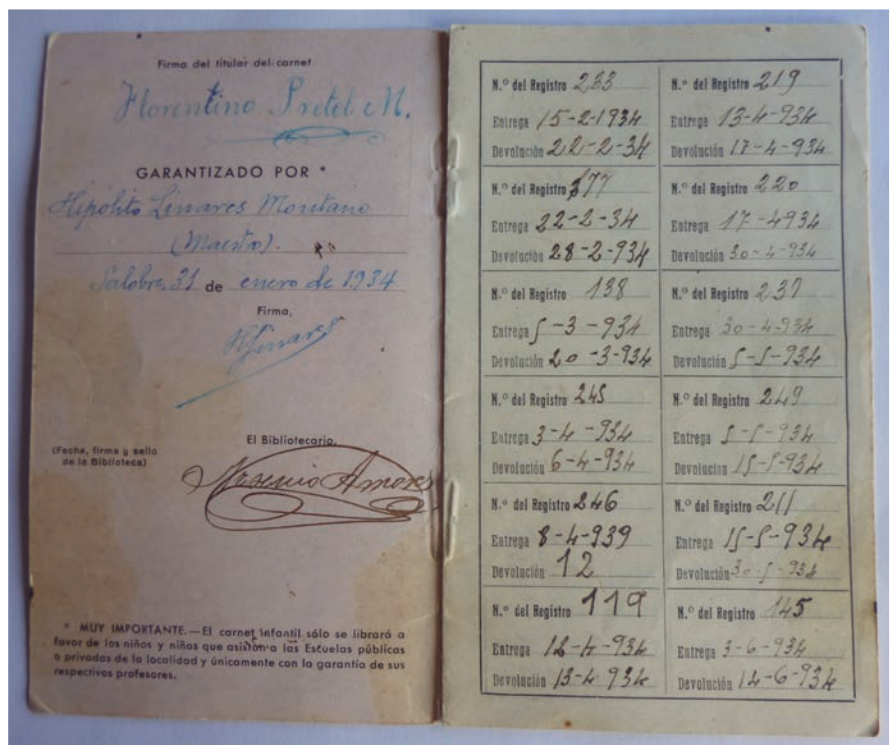 Firma del titular del carnet
Florentino Pretel M.
GARANTIZADO POR *
Hipólito Linares Montano
(Maestro).
Salobre 31 de enero de 1934
Firma,
HLinares
(Fecha, firma y sello
de la Biblioteca)
El Bibliotecario,
Arsenio Amores
* MUY IMPORTANTE.—El carnet infantil sólo se librará a
favor de los niños y niñas que asistan a las Escuelas públicas
o privadas de la localidad y únicamente con la garantía de sus
respectivos profesores.
N.º del Registro 233
Entrega 15-2-1934
Devolución 22-2-34
N.º del Registro 177
Entrega 22-2-34
Devolución 28-2-934
N.º del Registro 138
Entrega 5-3-934
Devolución 20-3-934
N.º del Registro 245
Entrega 3-4-934
Devolución 6-4-934
N.º del Registro 246
Entrega 8-4-939
Devolución 12
N.º del Registro 119
Entrega 12-4-934
Devolución 13-4 934
N.º del Registro 219
Entrega 13-4-934
Devolución 17-4-934
N.º del Registro 220
Entrega 17-4934
Devolución 30-4-934
N.º del Registro 237
Entrega 30-4-934
Devolución 5-5-934
N.º del Registro 249
Entrega 5-5-934
Devolución 15-5-934
N.º del Registro 211
Entrega 15-5-934
Devolución 30-5-934
N.º del Registro 145
Entrega 3-6-934
Devolución 14-6-934